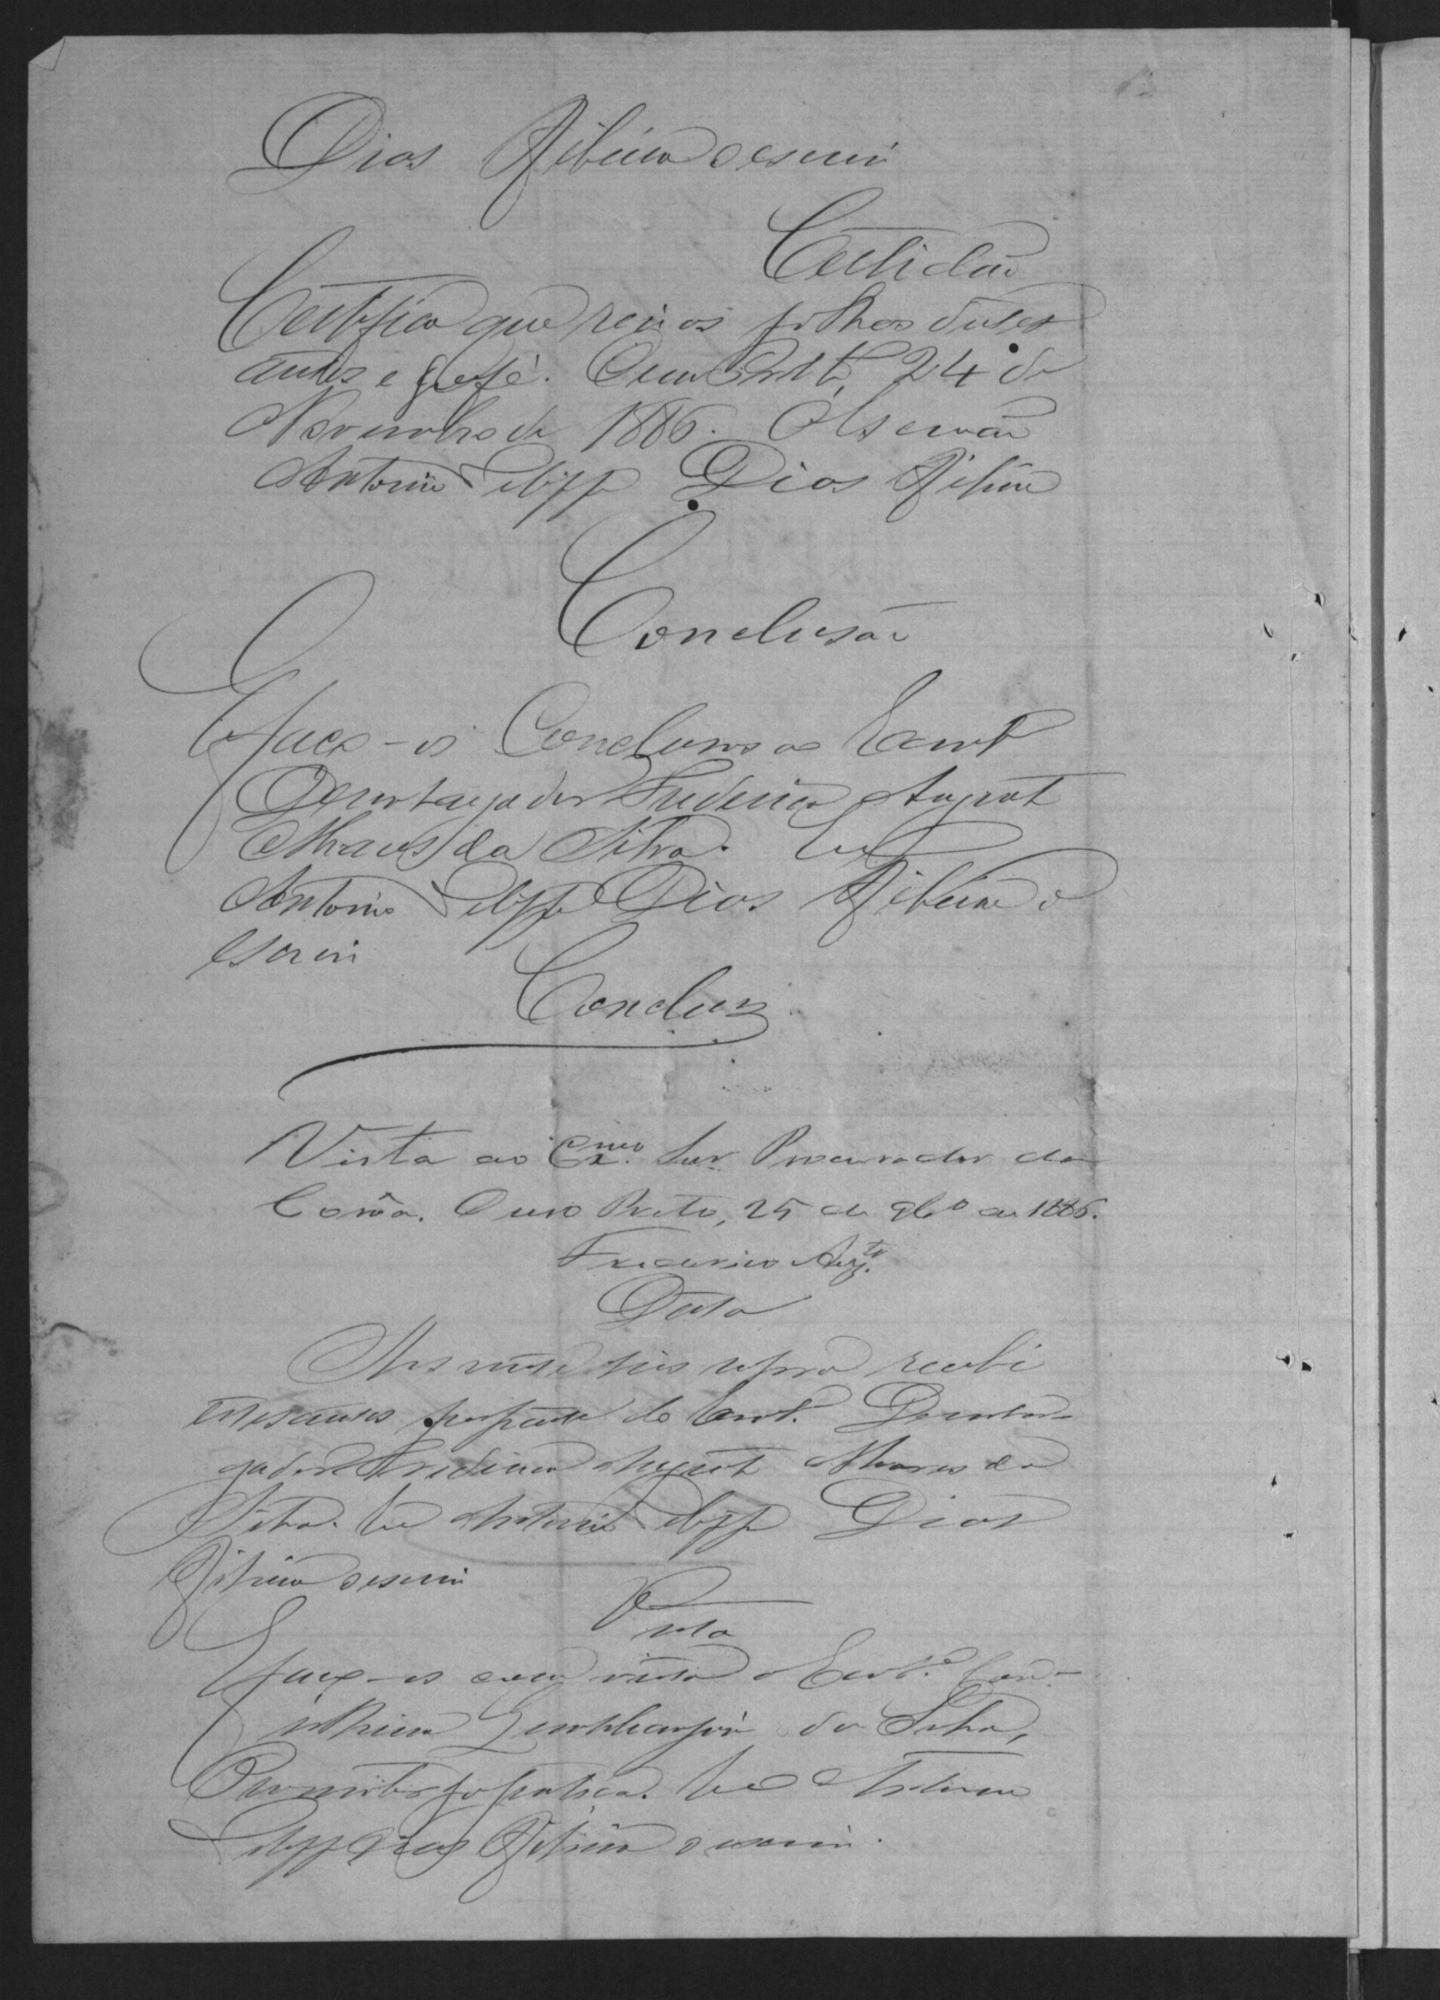 Dias Ribeiro o escrevi
Certidão
Certifico que revi os folhos destes
autos e dou fé. Ouro Preto, 24 de
Novembro de 1886. O Escrivão
Antonio Felippe Dias Ribeiro
Conclusão
E faço-os Conclusos ao Exmº
Desembargador Frederico Augusto
Alvares da Silva. Eu
Antonio Felippe Dias Ribeiro o
escrevi
Conclusos
Vista ao Exmo. Snr. Procurador da
Corôa. Ouro Preto, 25 de 9bro de 1886.
Frederico Augto.
Data
No mesmo dia supra recebi
estes autos por parte do Exmº. Desembar-
gador Frederico Augusto Alvares da
Silva. Eu Antonio Felippe Dias
Ribeiro o escrevi
Vista
E faço-os com vista ao Exmº. Con-
selheiro da Silva,
Eu Antonio
Felippe Dias Ribeiro o escrevi.